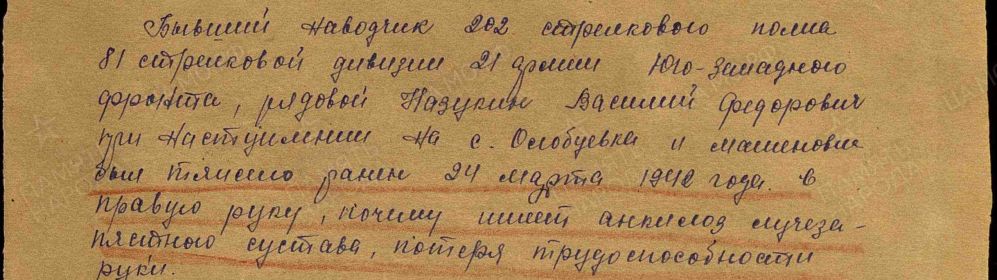 Бывший наводчик 202 стрелкового полка
81 стрелковой дивизии 21 армии Юго-Западного
фронта, рядовой Назукин Василий Федорович
при наступлении на с. Ослобуевка и машеновка
был тяжело ранен 24 марта 1942 года. в
правую руку, почему имеет анкилоз лучеза-
пястного сустава, потеря трудоспособности
руки.